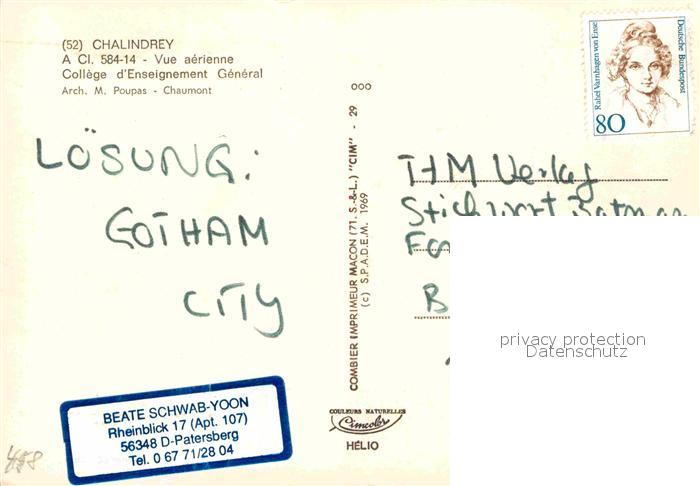 (52) CHALINDREY
A Cl. 584-14 - Vue aérienne
Collège d'Enseignement Général
Arch. M. Poupas - Chaumont
LÖSUNG:
GOTHAM
CITY
BEATE SCHWAB-YOON
Rheinblick 17 (Apt. 107)
56348 D-Patersberg
Tel. 0 67 71/28 04
458
COMBIER IMPRIMEUR MACON (71. S.-&-L.) "CIM" - 29
(c) S.P.A.D.E.M. 1969
COULEURS NATURELLES
Cimcolor
HÉLIO
Rahel Varnhagen von Ense
Deutsche Bundespost
80
Verlag
Stichwort Batman
B
privacy protection
Datenschutz